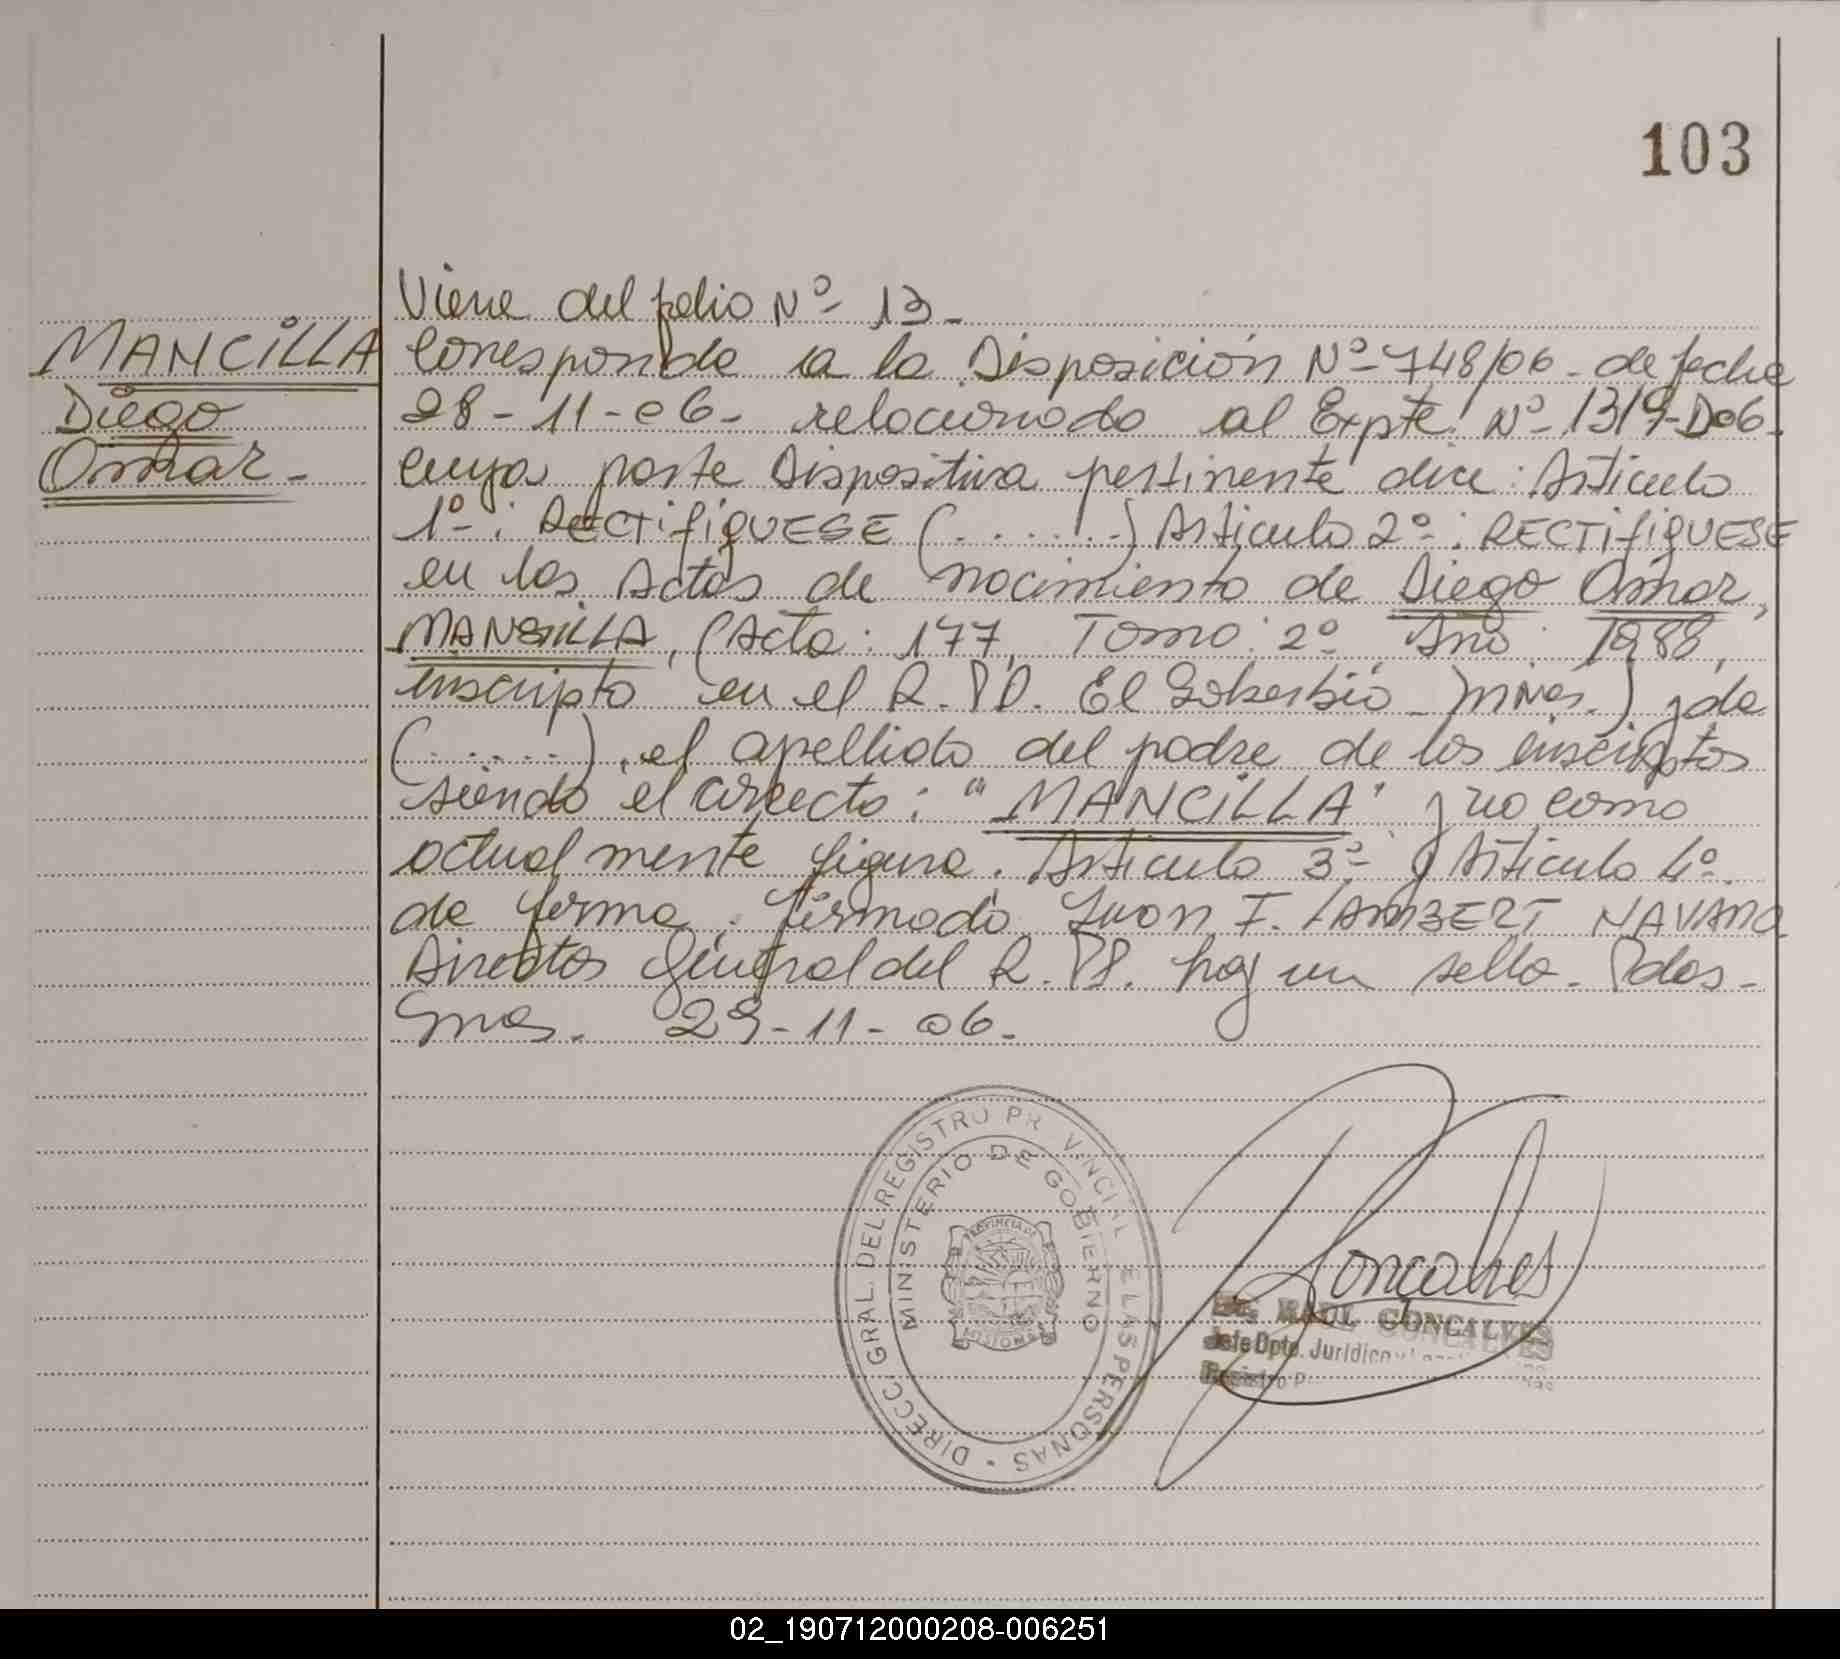 103
MANCILLA
Diego
Omar-
Viene del folio Nº 13-
Corresponde a la Disposición Nº 748/06- de fecha
28-11-06- relacionado al Expte. Nº 1319-D06-
cuya parte Dispositiva pertinente dice: Artículo
1º: RECTIFIQUESE (.......) Artículo 2º: RECTIFIQUESE
en las Actas de nacimiento de Diego Omar,
MANSILLA, (Acta: 177, Tomo: 2º Año: 1988,
inscripto en el R.PP. El Soberbio - Mnes.) y de
(......), el apellido del padre de los inscriptos
siendo el correcto: "MANCILLA" y no como
actualmente figura. Artículo 3º y Artículo 4º
de forma. firmado Juan F. LAMBERT NAVARRO
Director General del R.PP. hay un sello. Pdas-
Mnes. 29-11-06-
DIRECC. GRAL. DEL REGISTRO PR VINCIAL E LAS PERSONAS
MINISTERIO DE GOBIERNO
PROVINCIA DE
MISIONES
Gonçalves
RAUL GONCALVES
Jefe Dpto. Jurídico
Registro P
02_190712000208-006251